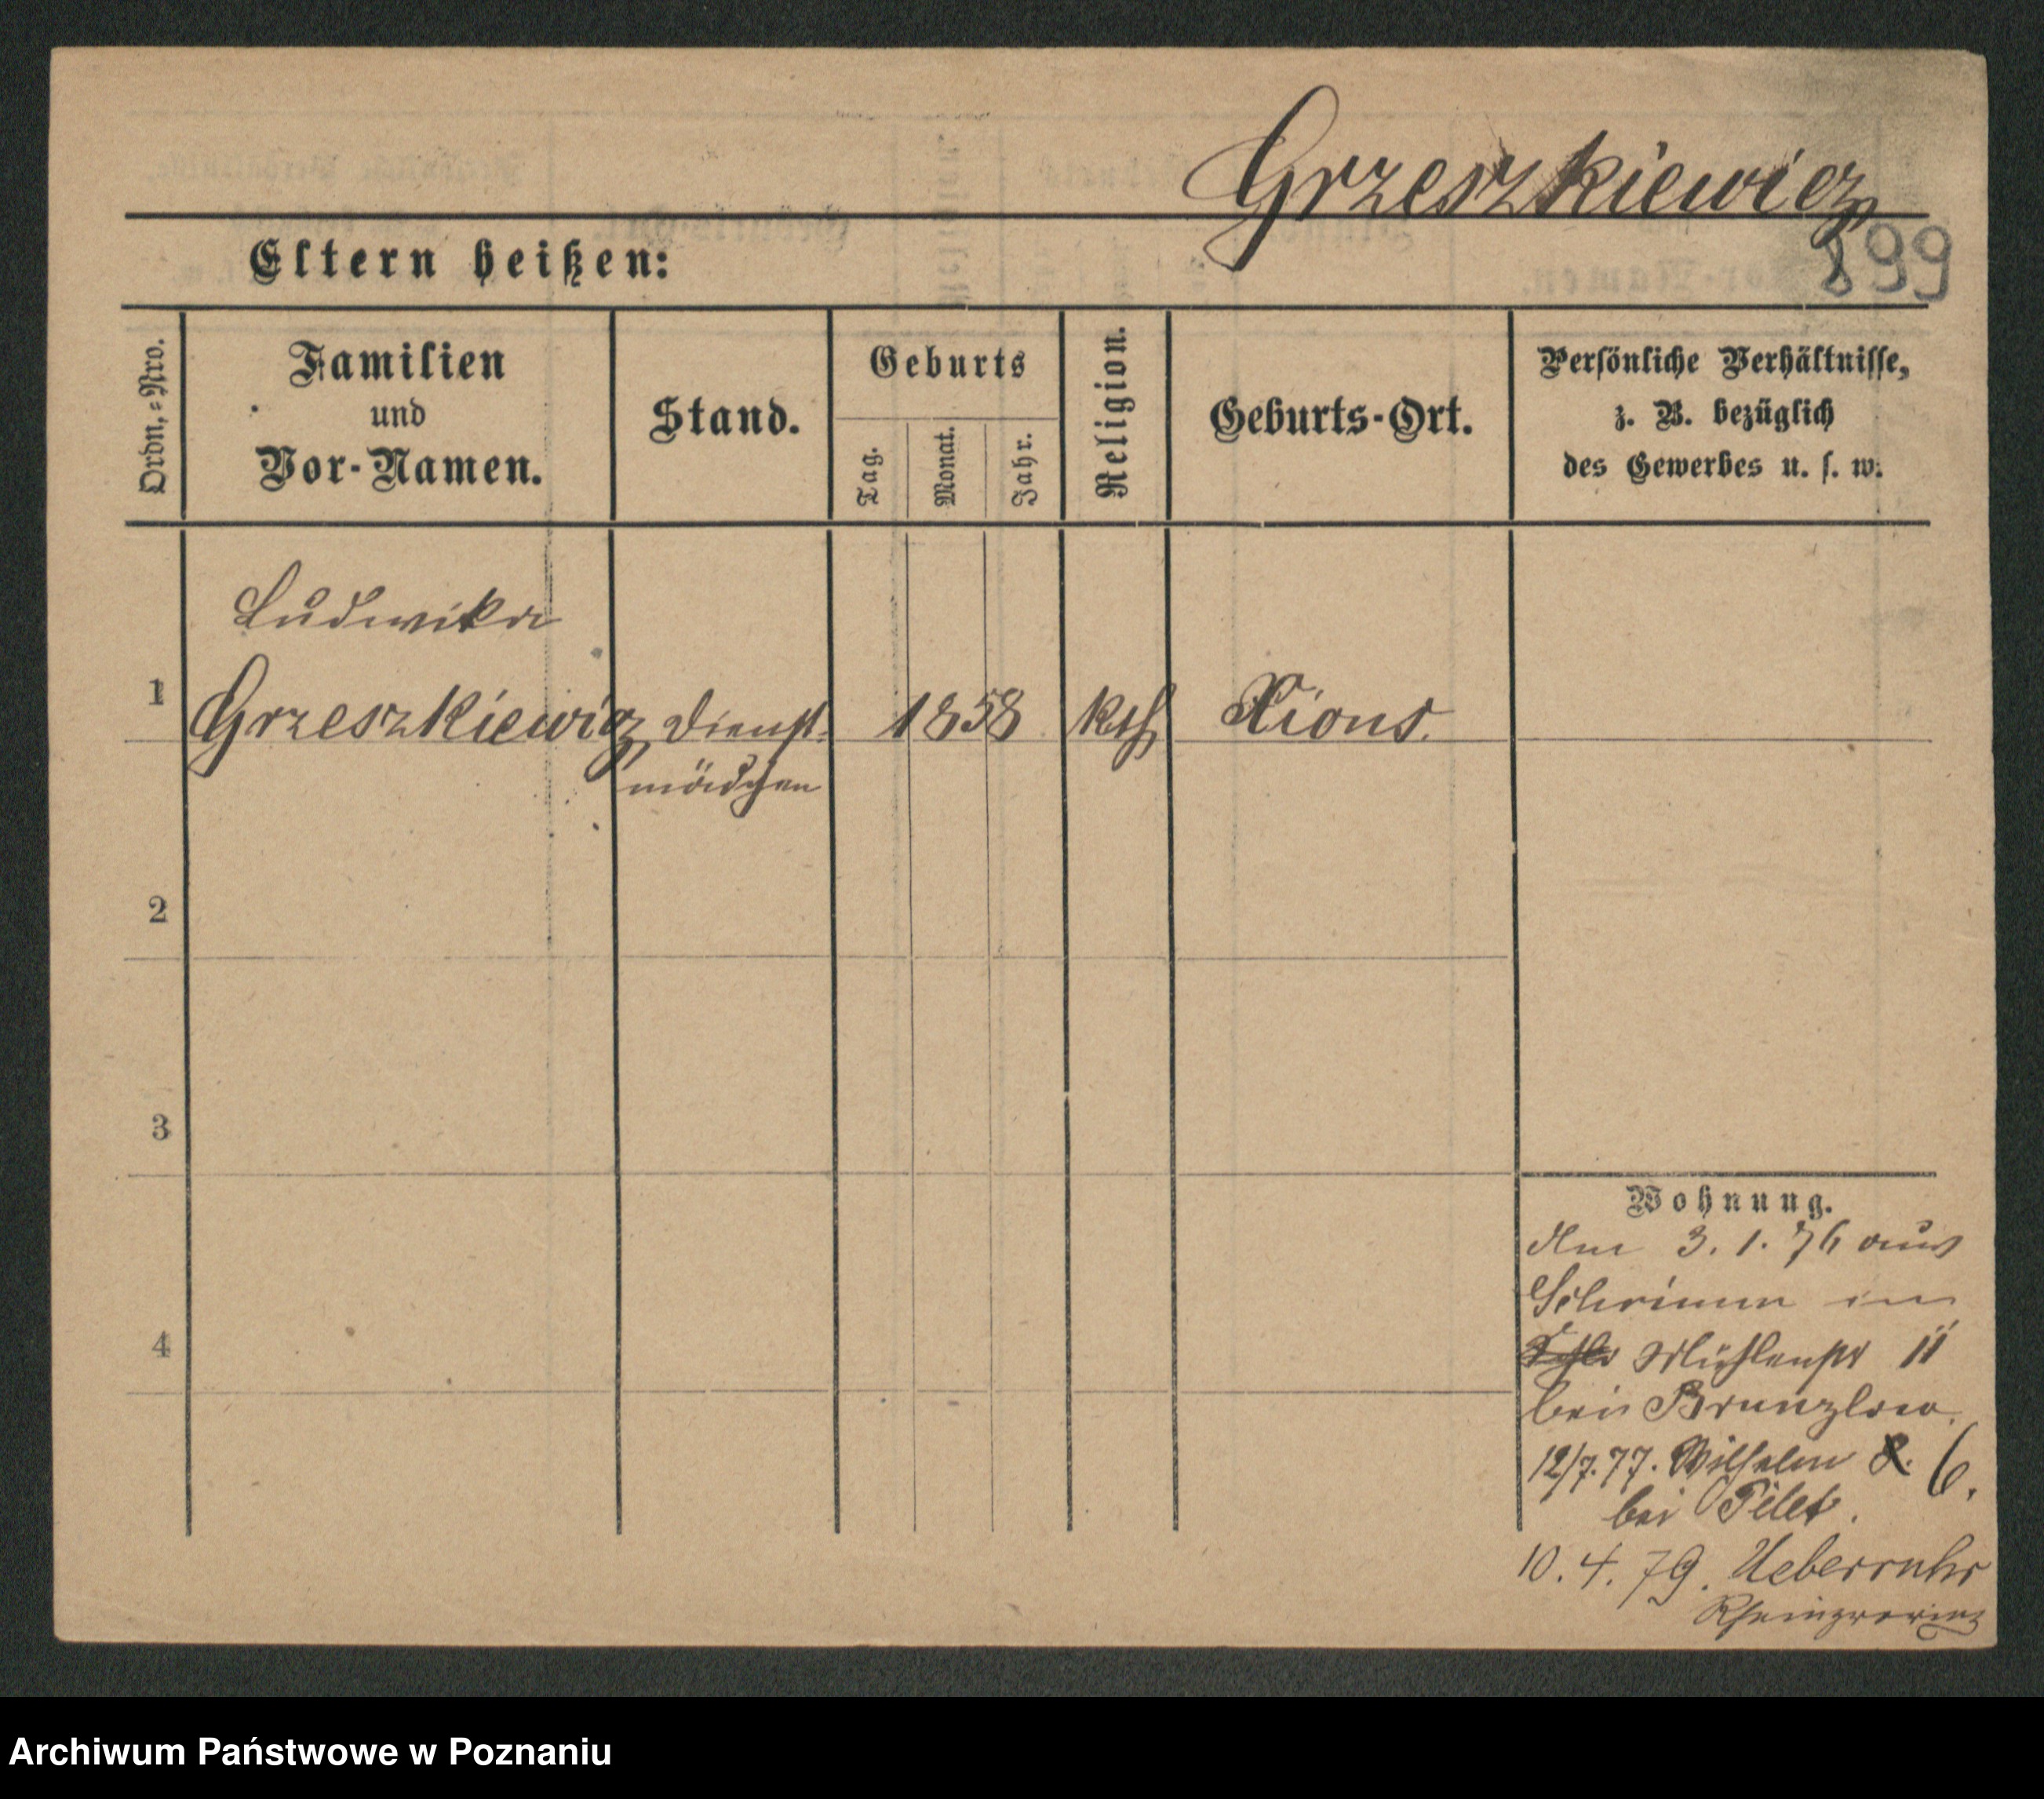 Grzeszkiewicz
899
Eltern heißen:
Ordn.=Nro.
Familien
und
Vor-Namen.
Stand.
Geburts
Tag.
Monat.
Jahr.
Religion.
Geburts-Ort.
Persönliche Verhältnisse,
z. B. bezüglich
des Gewerbes u. s. w.
Ludwika
1 Grzeszkiewicz Dienst- 1858 kth Xions.
mädchen
2
3
4
Wohnung.
Am 3. 1. 76 aus
Schrimm in
Mühlenstr 11
bei Brunzlow.
12/7. 77. Wilhelm 6.
bei Pilet.
10. 4. 79. Ueberruhr
Rheinprovinz
Archiwum Państwowe w Poznaniu